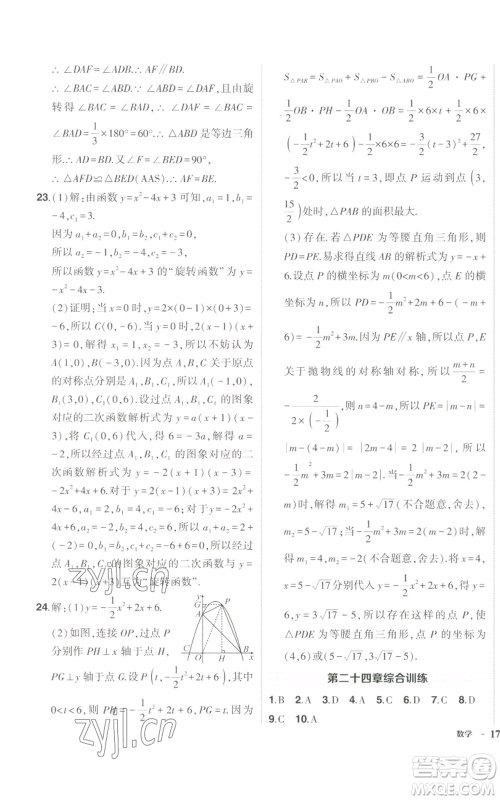 ∴ ∠DAF=∠ADB.∴ AF∥BD.
∴ ∠BAC=∠ABD.∵ ∠BAC=∠DAF,且由旋
转得∠BAC=∠BAD,∴ ∠FAD=∠BAC=
∠BAD=1/3×180°=60°,∴ △ABD是等边三角
形.∴ AD=BD.又∵ ∠AFD=∠BED=90°,
∴ △AFD≌△BED(AAS).∴ AF=BE.
23.(1)解:由函数y=x²-4x+3可知,a₁=1,b₁=
-4,c₁=3.
因为a₁+a₂=0,b₁=b₂,c₁+c₂=0,
所以a₂=-1,b₂=-4,c₂=-3.
所以函数y=x²-4x+3的“旋转函数”为y=
-x²-4x-3.
(2)证明:当x=0时,y=2×(0-1)×(0+3)=
-6,所以C(0,-6).当y=0时,2(x-1)(x+3)=
0,所以解得x₁=1,x₂=-3,所以不妨认为
A(1,0),B(-3,0).因为点A,B,C关于原点
的对称点分别是A₁,B₁,C₁,所以A₁(-1,0),
B₁(3,0),C₁(0,6).设过点A₁,B₁,C₁的图象
对应的二次函数解析式为y=a(x+1)(x-3),
将C₁(0,6)代入得6=-3a,解得a=-2,
所以经过点A₁,B₁,C₁的图象对应的二
次函数解析式为y=-2(x+1)(x-3)=
-2x²+4x+6.对于y=2(x-1)(x+3)=
2x²+4x-6,因为a₁+a₂=2+(-2)=0,b₁=
b₂=4,c₁+c₂=6+(-6)=0,所以经过点
A₁,B₁,C₁的图象对应的二次函数与函数y=
2(x-1)(x+3)互为“旋转函数”.
24.解:(1)y=-1/2x²+2x+6.
(2)如图,连接OP,过点P
作PH⊥x轴于点H,交AB
于点G.设P(t,-1/2t²+2t+6),
0<t<6,则
S△PAB=S△PAO+S△PBO-S△ABO=1/2OA·PG+
1/2OB·PH-1/2OA·OB=1/2×6×t+1/2×6×
(-1/2t²+2t+6)-1/2×6×6=-3/2(t-9/2)²+243/8.因为
-3/2<0,所以当t=9/2时,即点P运动到点(9/2,
15/2)处时,△PAB的面积最大.
(3)存在.若△PDE为等腰直角三角形,则
PD=PE.易求得直线AB的解析式为y=-x+
6.设点P的横坐标为m(0<m<6),点E的横
坐标为n,所以PD=-1/2m²+2m+6-(-m+
6)=-1/2m²+3m.因为PE∥x轴,所以点P,E
关于抛物线的对称轴对称.所以(m+n)/2=
-2/(2×(-1/2)),所以n=4-m,所以PE=|m-n|=
|m-(4-m)|=|2m-4|=2|m-2|,所以
-1/2m²+3m=2|m-2|.当-1/2m²+3m=-2(m-
2)时,解得m₁=5+√17(不合题意,舍去),
m₂=5-√17;当-1/2m²+3m=2(m-2)时,解得
m₁=4,m₂=-2(不合题意,舍去).将x=4,
x=5-√17分别代入y=-1/2x²+2x+6,得y=
6,y=3√17-5.所以综上所述,存在点P使得
△PDE为等腰直角三角形,此时点P的坐标为
(4,6)或(5-√17,3√17-5).
第二十四章综合训练
1.B 2.A 3.D 4.A 5.C 6.D 7.D 8.D
9.C 10.A
数学 - 17
zyjl.cn